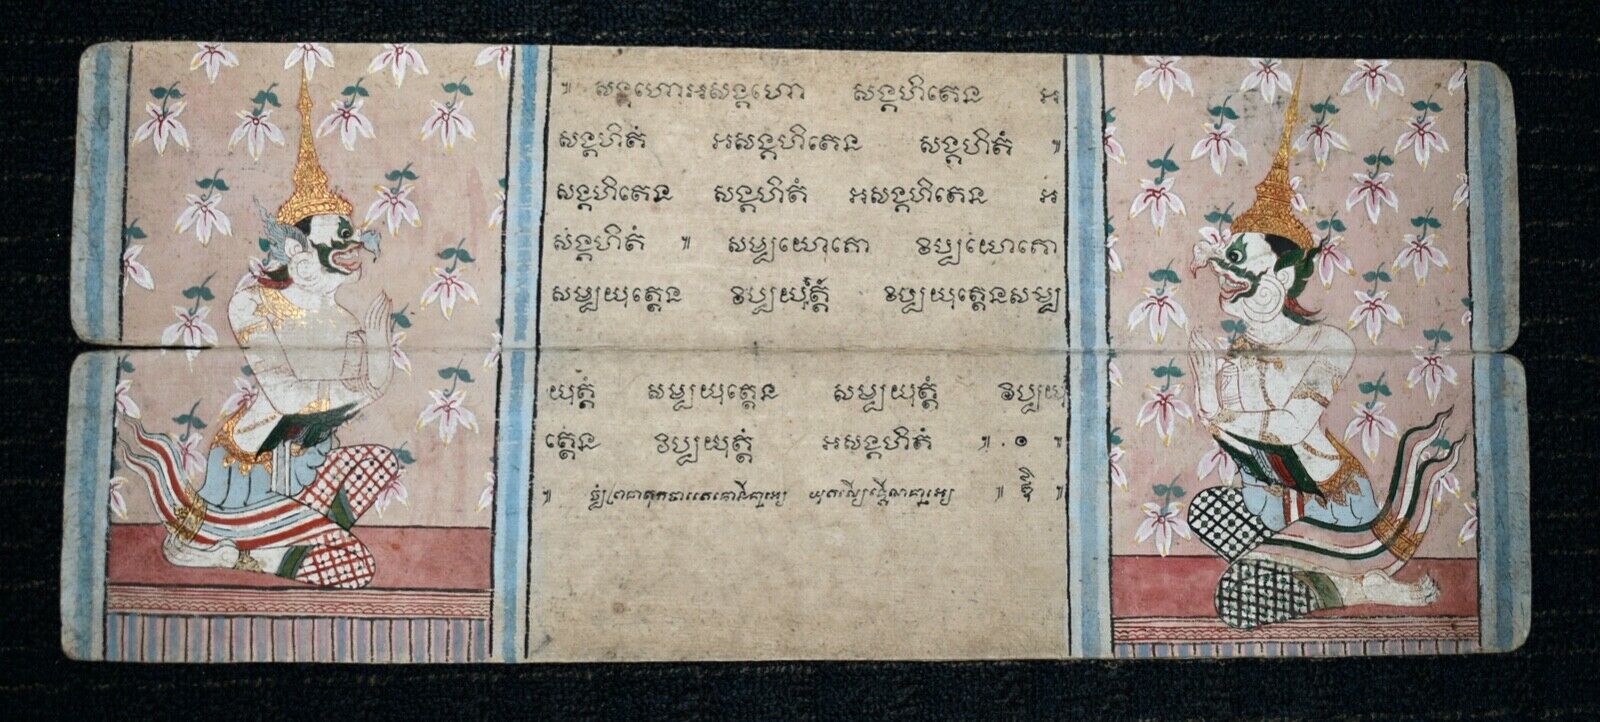 ៕ សង្គហោអសង្គហោ សង្គហិតេន អ
សង្គហិតំ អសង្គហិតេន សង្គហិតំ ៕
សង្គហិតេន សង្គហិតំ អសង្គហិតេន អ
សង្គហិតំ ៕ សម្បយោគោ វិប្បយោគោ
សម្បយុត្តេន វិប្បយុត្តំ វិប្បយុត្តេនសម្ប
យុត្តំ សម្បយុត្តេន សម្បយុត្តំ វិប្បយុ
ត្តេន វិប្បយុត្តំ អសង្គហិតំ ៕ ១ ៕